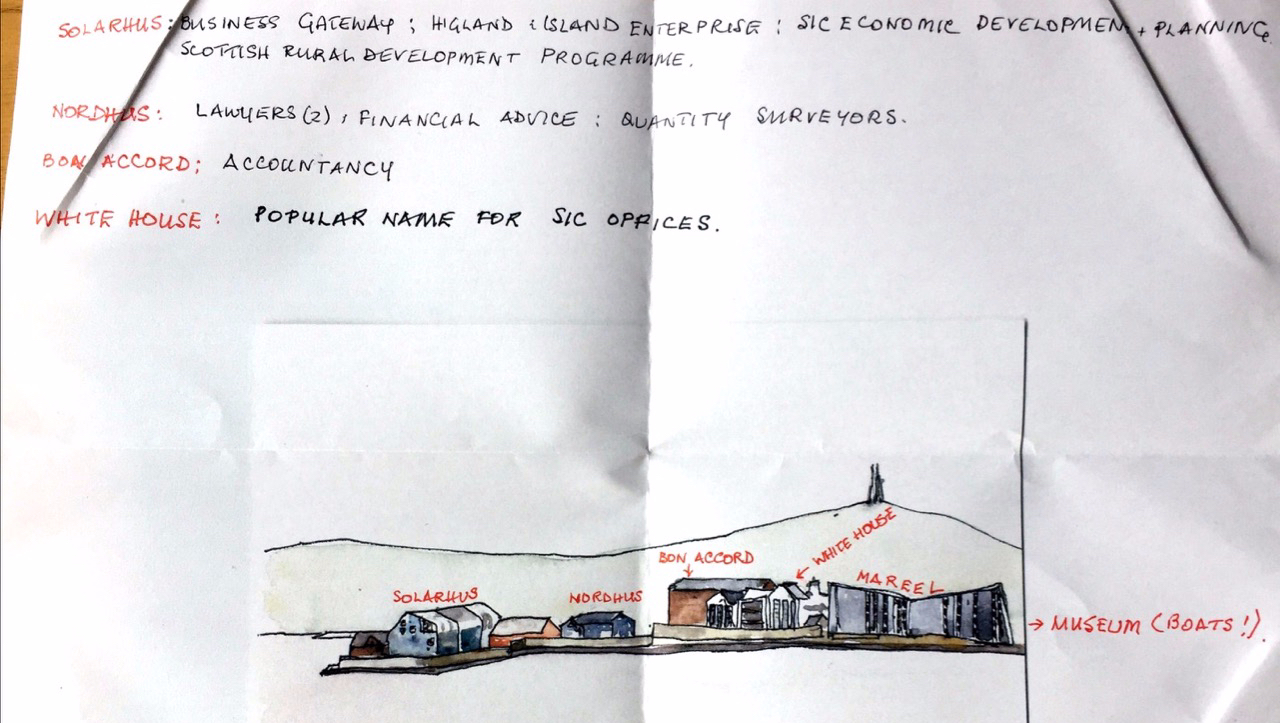 SOLARHUS: BUSINESS GATEWAY ; HIGLAND & ISLAND ENTERPRISE ; SIC ECONOMIC DEVELOPMENT + PLANNING.
SCOTTISH RURAL DEVELOPMENT PROGRAMME.
NORDHUS: LAWYERS (2) ; FINANCIAL ADVICE : QUANTITY SURVEYORS.
BON ACCORD; ACCOUNTANCY
WHITE HOUSE: POPULAR NAME FOR SIC OFFICES.
BON ACCORD
WHITE HOUSE
SOLARHUS
NORDHUS
MAREEL
→ MUSEUM (BOATS!).